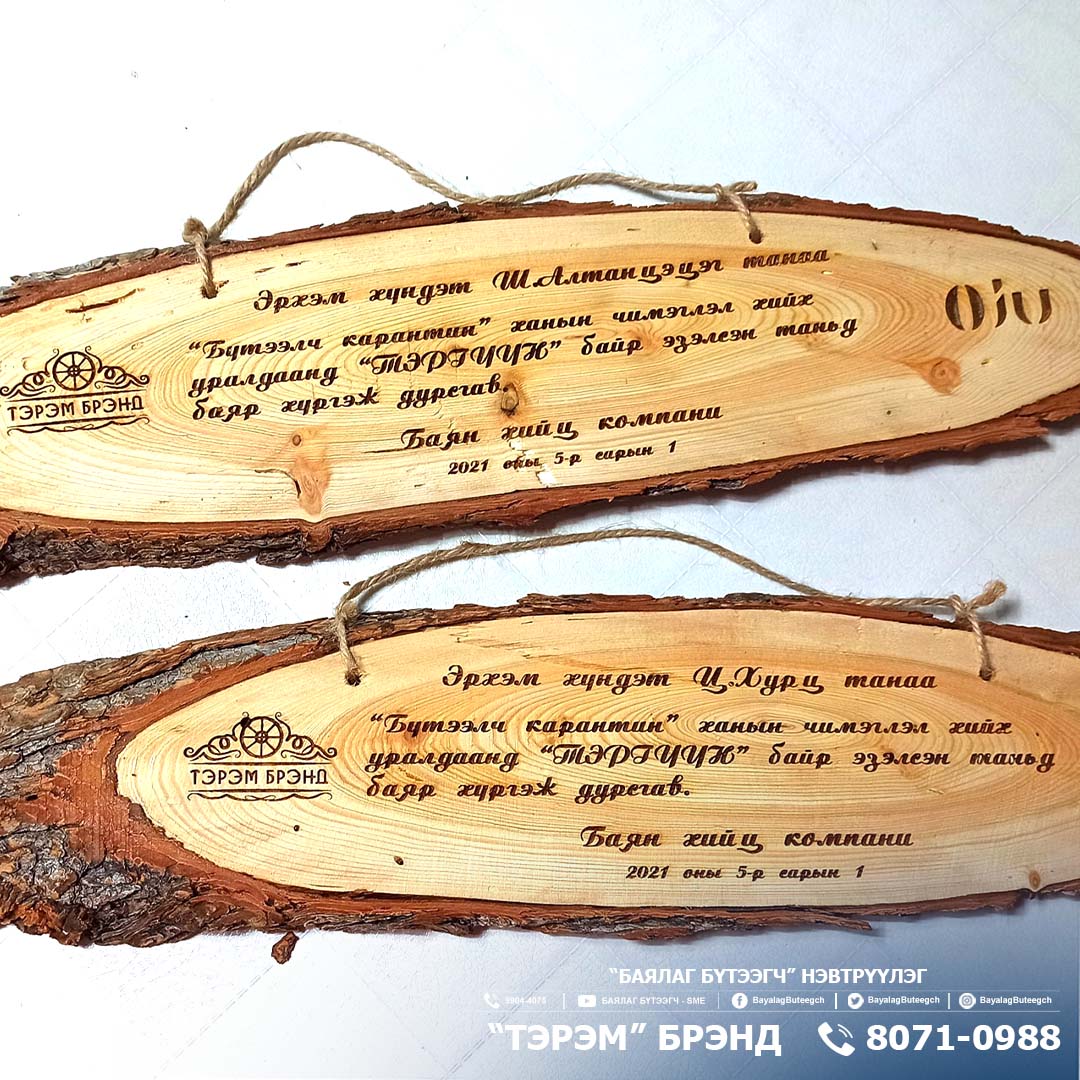 Эрхэм хүндэт Ш.Алтанцэцэг танаа
“Бүтээлч карантин” ханын чимэглэл хийх
уралдаанд “ТЭРГҮҮН” байр эзэлсэн таньд
баяр хүргэж дурсгав.
Баян хийц компани
2021 оны 5-р сарын 1
ТЭРЭМ БРЭНД
Oju
Эрхэм хүндэт Ц.Хурц танаа
“Бүтээлч карантин” ханын чимэглэл хийх
уралдаанд “ТЭРГҮҮН” байр эзэлсэн таньд
баяр хүргэж дурсгав.
Баян хийц компани
2021 оны 5-р сарын 1
ТЭРЭМ БРЭНД
“БАЯЛАГ БҮТЭЭГЧ” НЭВТРҮҮЛЭГ
9904-4078 | БАЯЛАГ БҮТЭЭГЧ - SME | BayalagButeegch | BayalagButeegch | BayalagButeegch
“ТЭРЭМ” БРЭНД 8071-0988